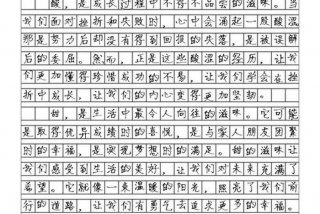 酸，是成长过程中不得不品尝的滋味。当
我们面对挫折和失败时，心中会涌起一股酸涩。
那是努力后却没有得到回报的失落，是被误解
后的委屈。然而，正是这些酸涩的经历，让我
们更加懂得珍惜成功的不易，让我们学会在挫
折中成长，让我们的内心变得更加坚韧。
甜，是生活中最令人向往的滋味。它可能
是取得优异成绩时的喜悦，是与家人朋友团聚
时的幸福，是实现梦想时的满足。甜的滋味让
我们感受到生活的美好，让我们对未来充满了
希望。它就像一束温暖的阳光，照亮了我们前
行的道路，让我们有勇气去追求更多的幸福。